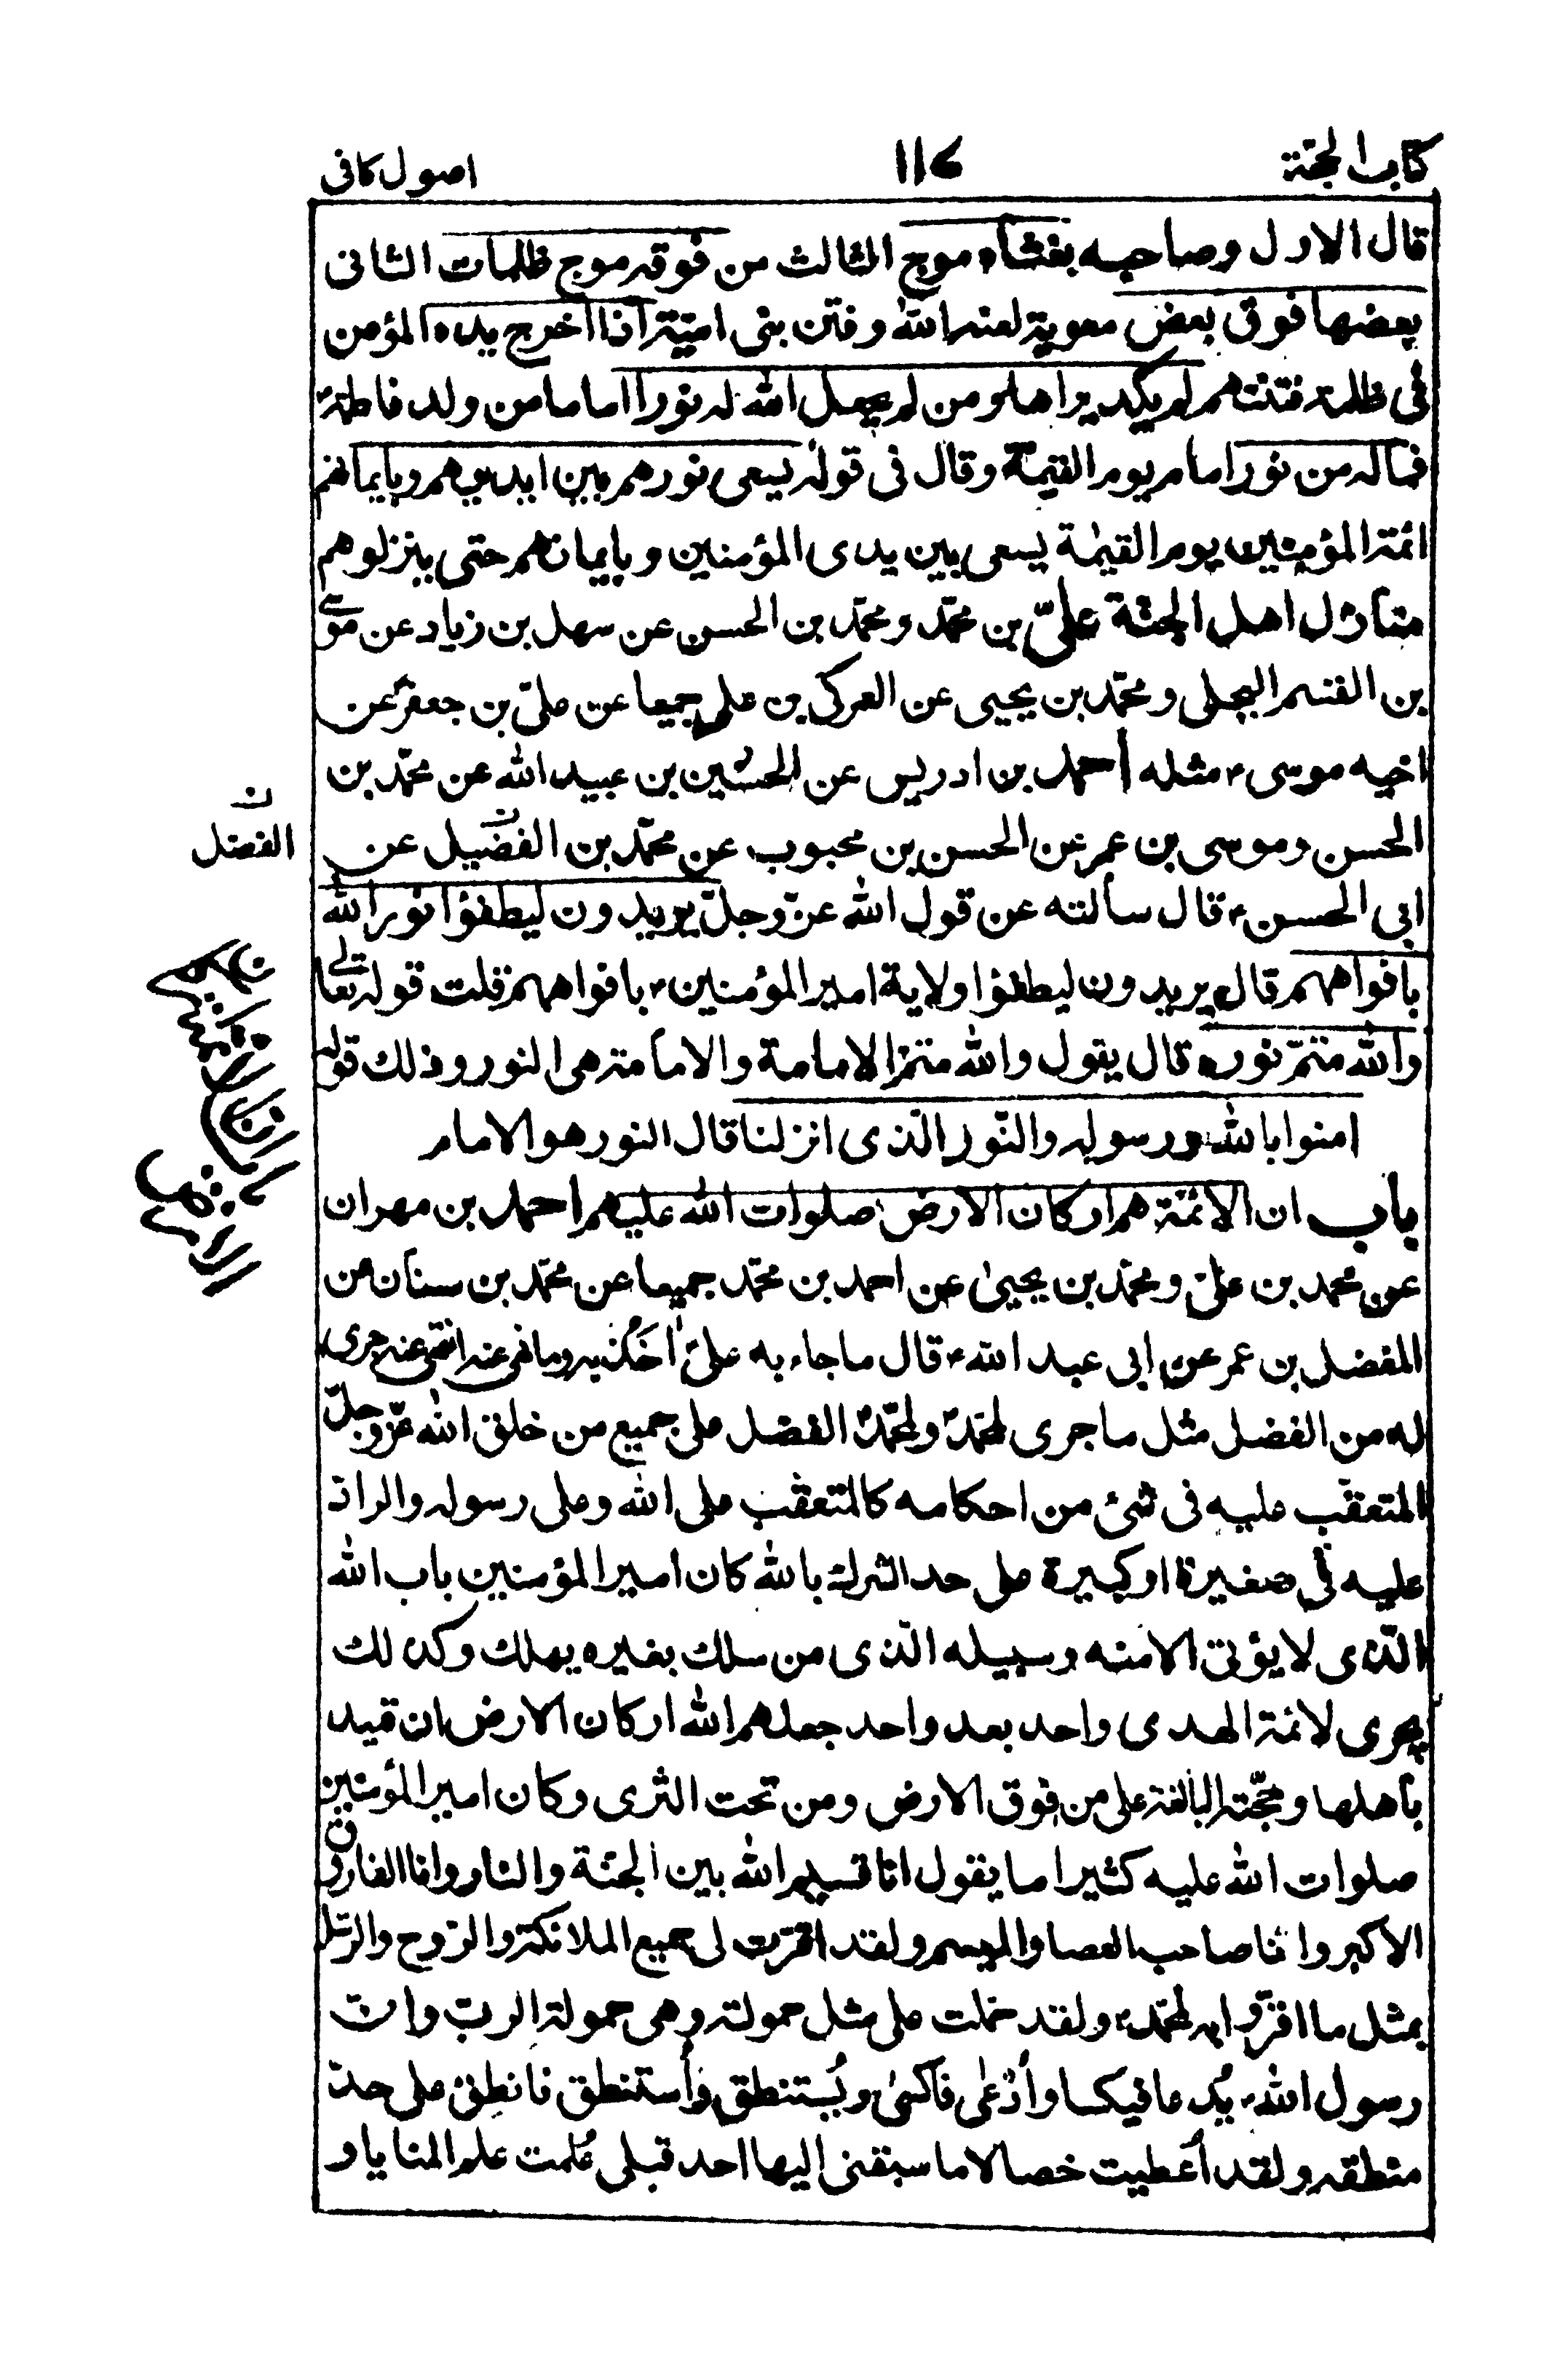 كتاب الحجّة ١١٧ اصول كافى
قال الاول وصاحبه يغشاه موج الثالث من فوقه موج ظلمات الثانى
بعضها فوق بعض معوية لعنه الله وفتن بنى اميّة اذا اخرج يده المؤمن
فى ظلمة فتنتهم لم يكد يراها ومن لم يجعل الله له نورا اماما من ولد فاطمة
فماله من نور امام يوم القيمة وقال فى قوله يسعى نورهم بين ايديهم وبايمانهم
ائمة المؤمنين يوم القيمة يسعى بين يدى المؤمنين وبايمانهم حتى ينزلوهم
منازل اهل الجنّة علىّ بن محمّد ومحمّد بن الحسن عن سهل بن زياد عن موسى
بن القسم البجلى ومحمّد بن يحيى عن العمركى بن على جميعا عن علىّ بن جعفر عن
اخيه موسى ع مثله احمد بن ادريس عن الحسين بن عبيد الله عن محمّد بن
الحسن وموسى بن عمر عن الحسن بن محبوب عن محمّد بن الفضيل عن
ن
الفضل
ابى الحسن ع قال سألته عن قول الله عزّ وجلّ يريدون ليطفؤا نور الله
بافواههم قال يريدون ليطفؤا ولاية امير المؤمنين ع بافواههم قلت قوله تعالى
والله متمّ نوره قال يقول والله متمّ الامامة والامامة هى النور وذلك قوله
امنوا بالله ورسوله والنّور الّذى انزلنا قال النور هو الامام
باب ان الائمّة هم اركان الارض صلوات الله عليهم احمد بن مهران
عن محمد بن علىّ ومحمّد بن يحيىٰ عن احمد بن محمّد جميعا عن محمّد بن سنان عن
المفضل بن عمر عن ابى عبد الله ع قال ما جاء به علىّ اٰخُذ به وما نهى عنه انتهى عنه جرى
له من الفضل مثل ما جرى لمحمّد ولمحمّد الفضل على جميع من خلق الله عزّ وجلّ
المتعقّب عليه فى شئ من احكامه كالمتعقّب على الله وعلى رسوله والرادّ
عليه فى صغيرة او كبيرة على حد الشرك بالله كان امير المؤمنين باب الله
الّذى لا يؤتى الا منه وسبيله الّذى من سلك بغيره يهلك وكذلك
يجرى لائمة الهدى واحد بعد واحد جعلهم الله اركان الارض ان تميد
باهلها وحجّته البالغة على من فوق الارض ومن تحت الثرى وكان امير المؤمنين
صلوات الله عليه كثيرا ما يقول انا قسيم الله بين الجنّة والنار وانا الفاروق
الاكبر وانا صاحب العصا والميسم ولقد اقرّت لى جميع الملائكة والرّوح والرّسل
بمثل ما اقرّوا به لمحمّد ع ولقد حملت على مثل حمولته وهى حمولة الربّ وانّ
رسول الله ع يُدعا فيكسا واُدْعٰى فاُكسىٰ ويُستنطق واُستنطق فانطق على حدّ
منطقه ولقد اُعطيت خصالا ما سبقنى اليها احد قبلى عُلمت علم المنايا و